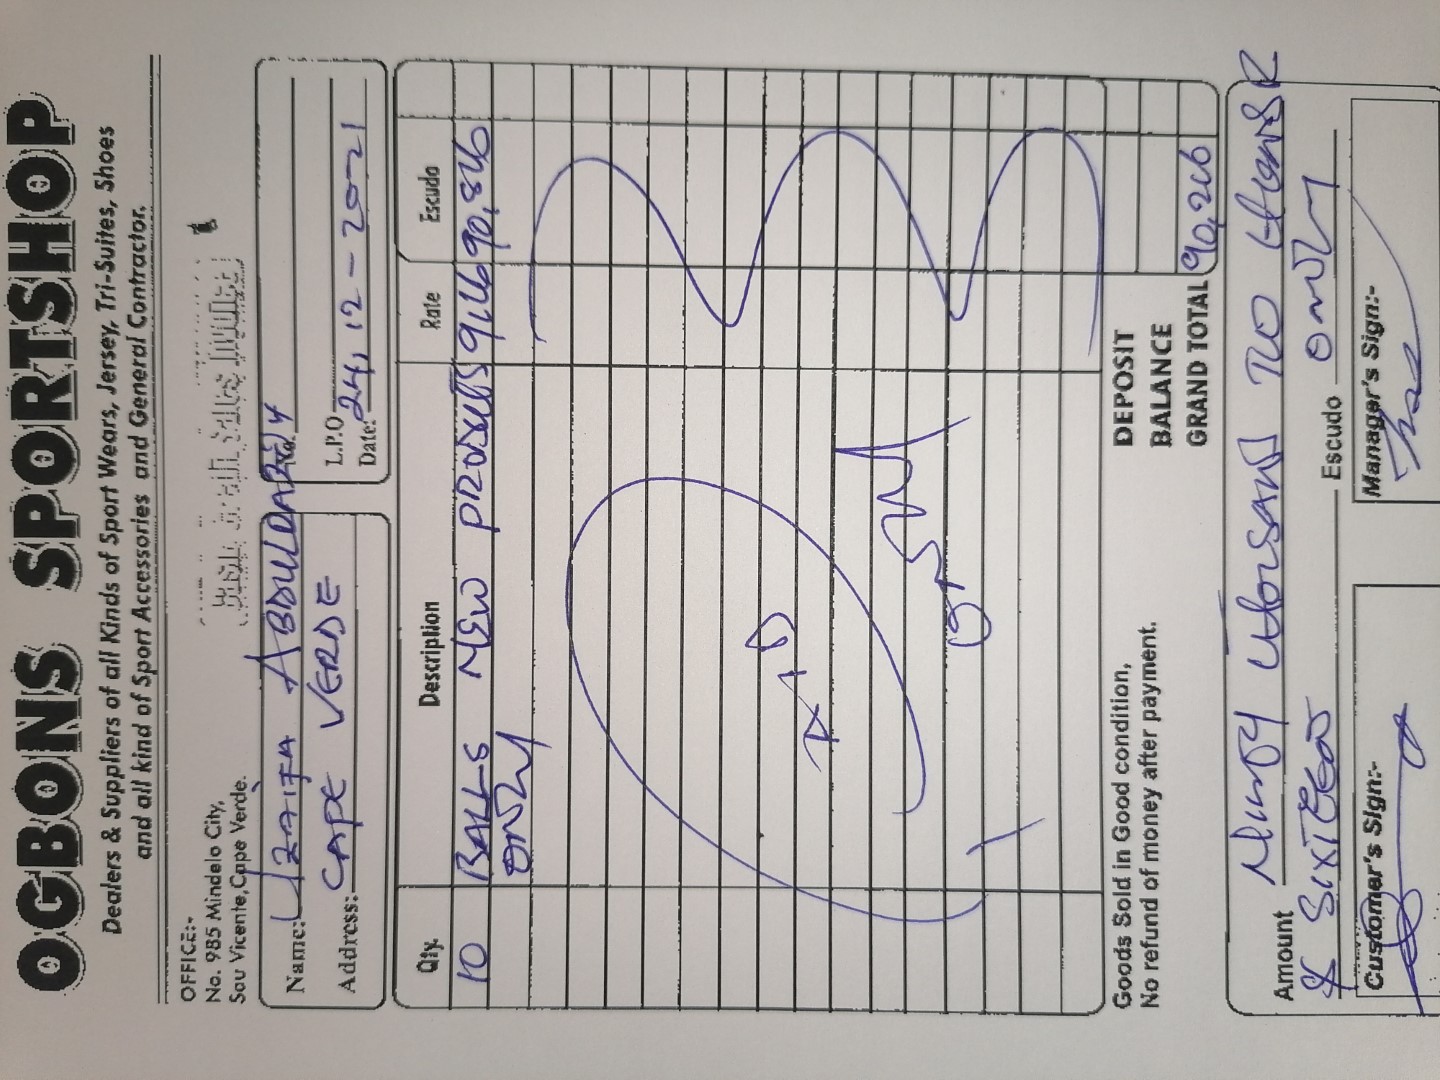 OGBONS SPORTSHOP
Dealers & Suppliers of all Kinds of Sport Wears, Jersey, Tri-Suites, Shoes
and all kind of Sport Accessories and General Contractor.
OFFICE:-
No. 985 Mindelo City,
Sau Vicente, Cape Verde.
Cash/Credit Sales Invoice
Name: ABDUL
Address: CAPE VERDE
L.P.O
Date: 24, 12 - 2021
Qty. Description Rate Escudo
10 BALLS NEW PRODUCTS
ONLY
PAID
DEPOSIT
BALANCE
GRAND TOTAL
Goods Sold in Good condition,
No refund of money after payment.
Amount Ninety thousand two
& Sixteen Escudo only
Customer's Sign:-
Manager's Sign:-